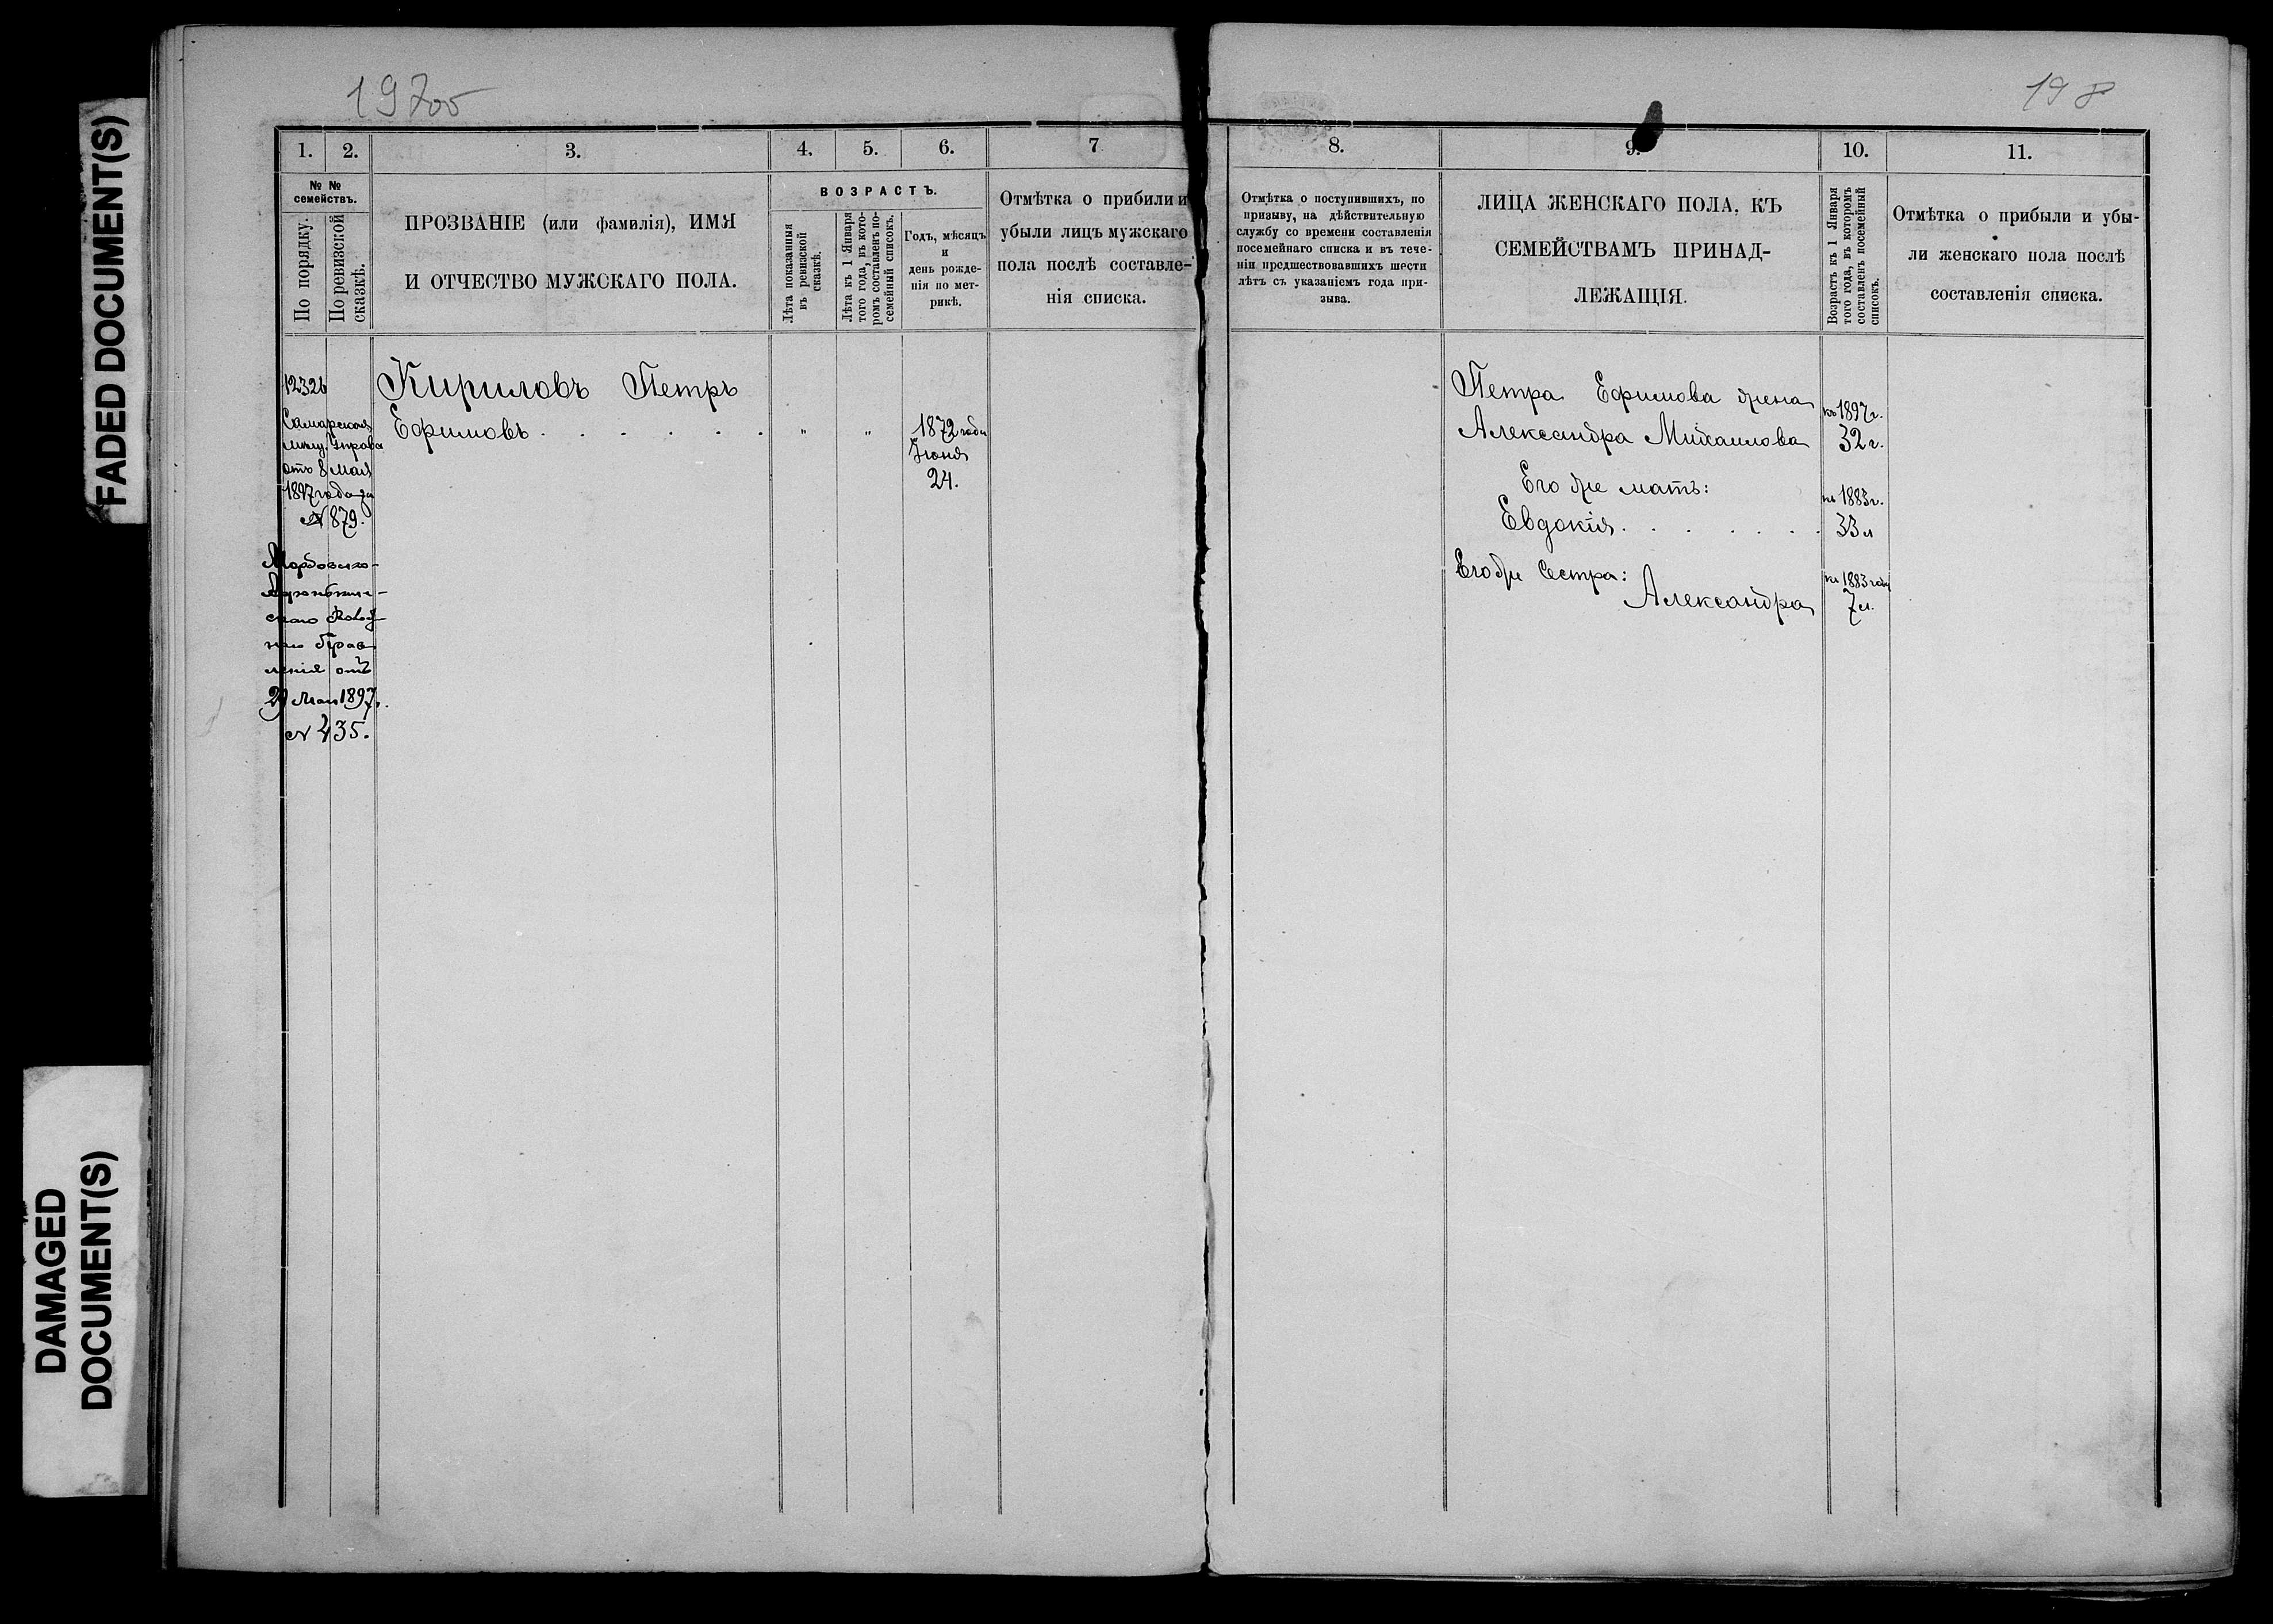 FADED DOCUMENT(S)
DAMAGED
DOCUMENT(S)
197об
1. 2. 3. 4. 5. 6. 7
№ № семействъ.
По порядку.
По ревизской сказкѣ.
ПРОЗВАНІЕ (или фамилія), ИМЯ
И ОТЧЕСТВО МУЖСКАГО ПОЛА.
ВОЗРАСТЪ.
Лѣта показанныя въ ревизской сказкѣ.
Лѣта къ 1 Января того года, въ которомъ составленъ посемейный списокъ.
Годъ, мѣсяцъ
и
день рожде-
нія по мет-
рикѣ.
Отмѣтка о прибыли и
убыли лицъ мужскаго
пола послѣ составле-
нія списка.
12326
Самарская
мѣщ. Управа
отъ 8 мая
1897 года за
№ 879.
Мордовско-
скаго Волост
наго Прав
ленія отъ
29 Мая 1897 г.
№ 435.
Кириловъ Петръ
Ефимовъ . . . . . . " "
1872 года
Іюня
24.
198
8. 9. 10. 11.
Отмѣтка о поступившихъ, по
призыву, на дѣйствительную
службу со времени составленія
посемейнаго списка и въ тече-
ніи предшествовавшихъ шести
лѣтъ съ указаніемъ года при-
зыва.
ЛИЦА ЖЕНСКАГО ПОЛА, КЪ
СЕМЕЙСТВАМЪ ПРИНАД-
ЛЕЖАЩІЯ.
Возрастъ къ 1 Января
того года, въ которомъ
составленъ посемейный
списокъ.
Отмѣтка о прибыли и убы-
ли женскаго пола послѣ
составленія списка.
Петра Ефимова жена къ 1897 г.
Александра Михаилова 32 г.
Его же мать: къ 1883 г.
Евдокія . . . . . . 33 л
Его же Сестра: къ 1883 году
Александра 7 л.